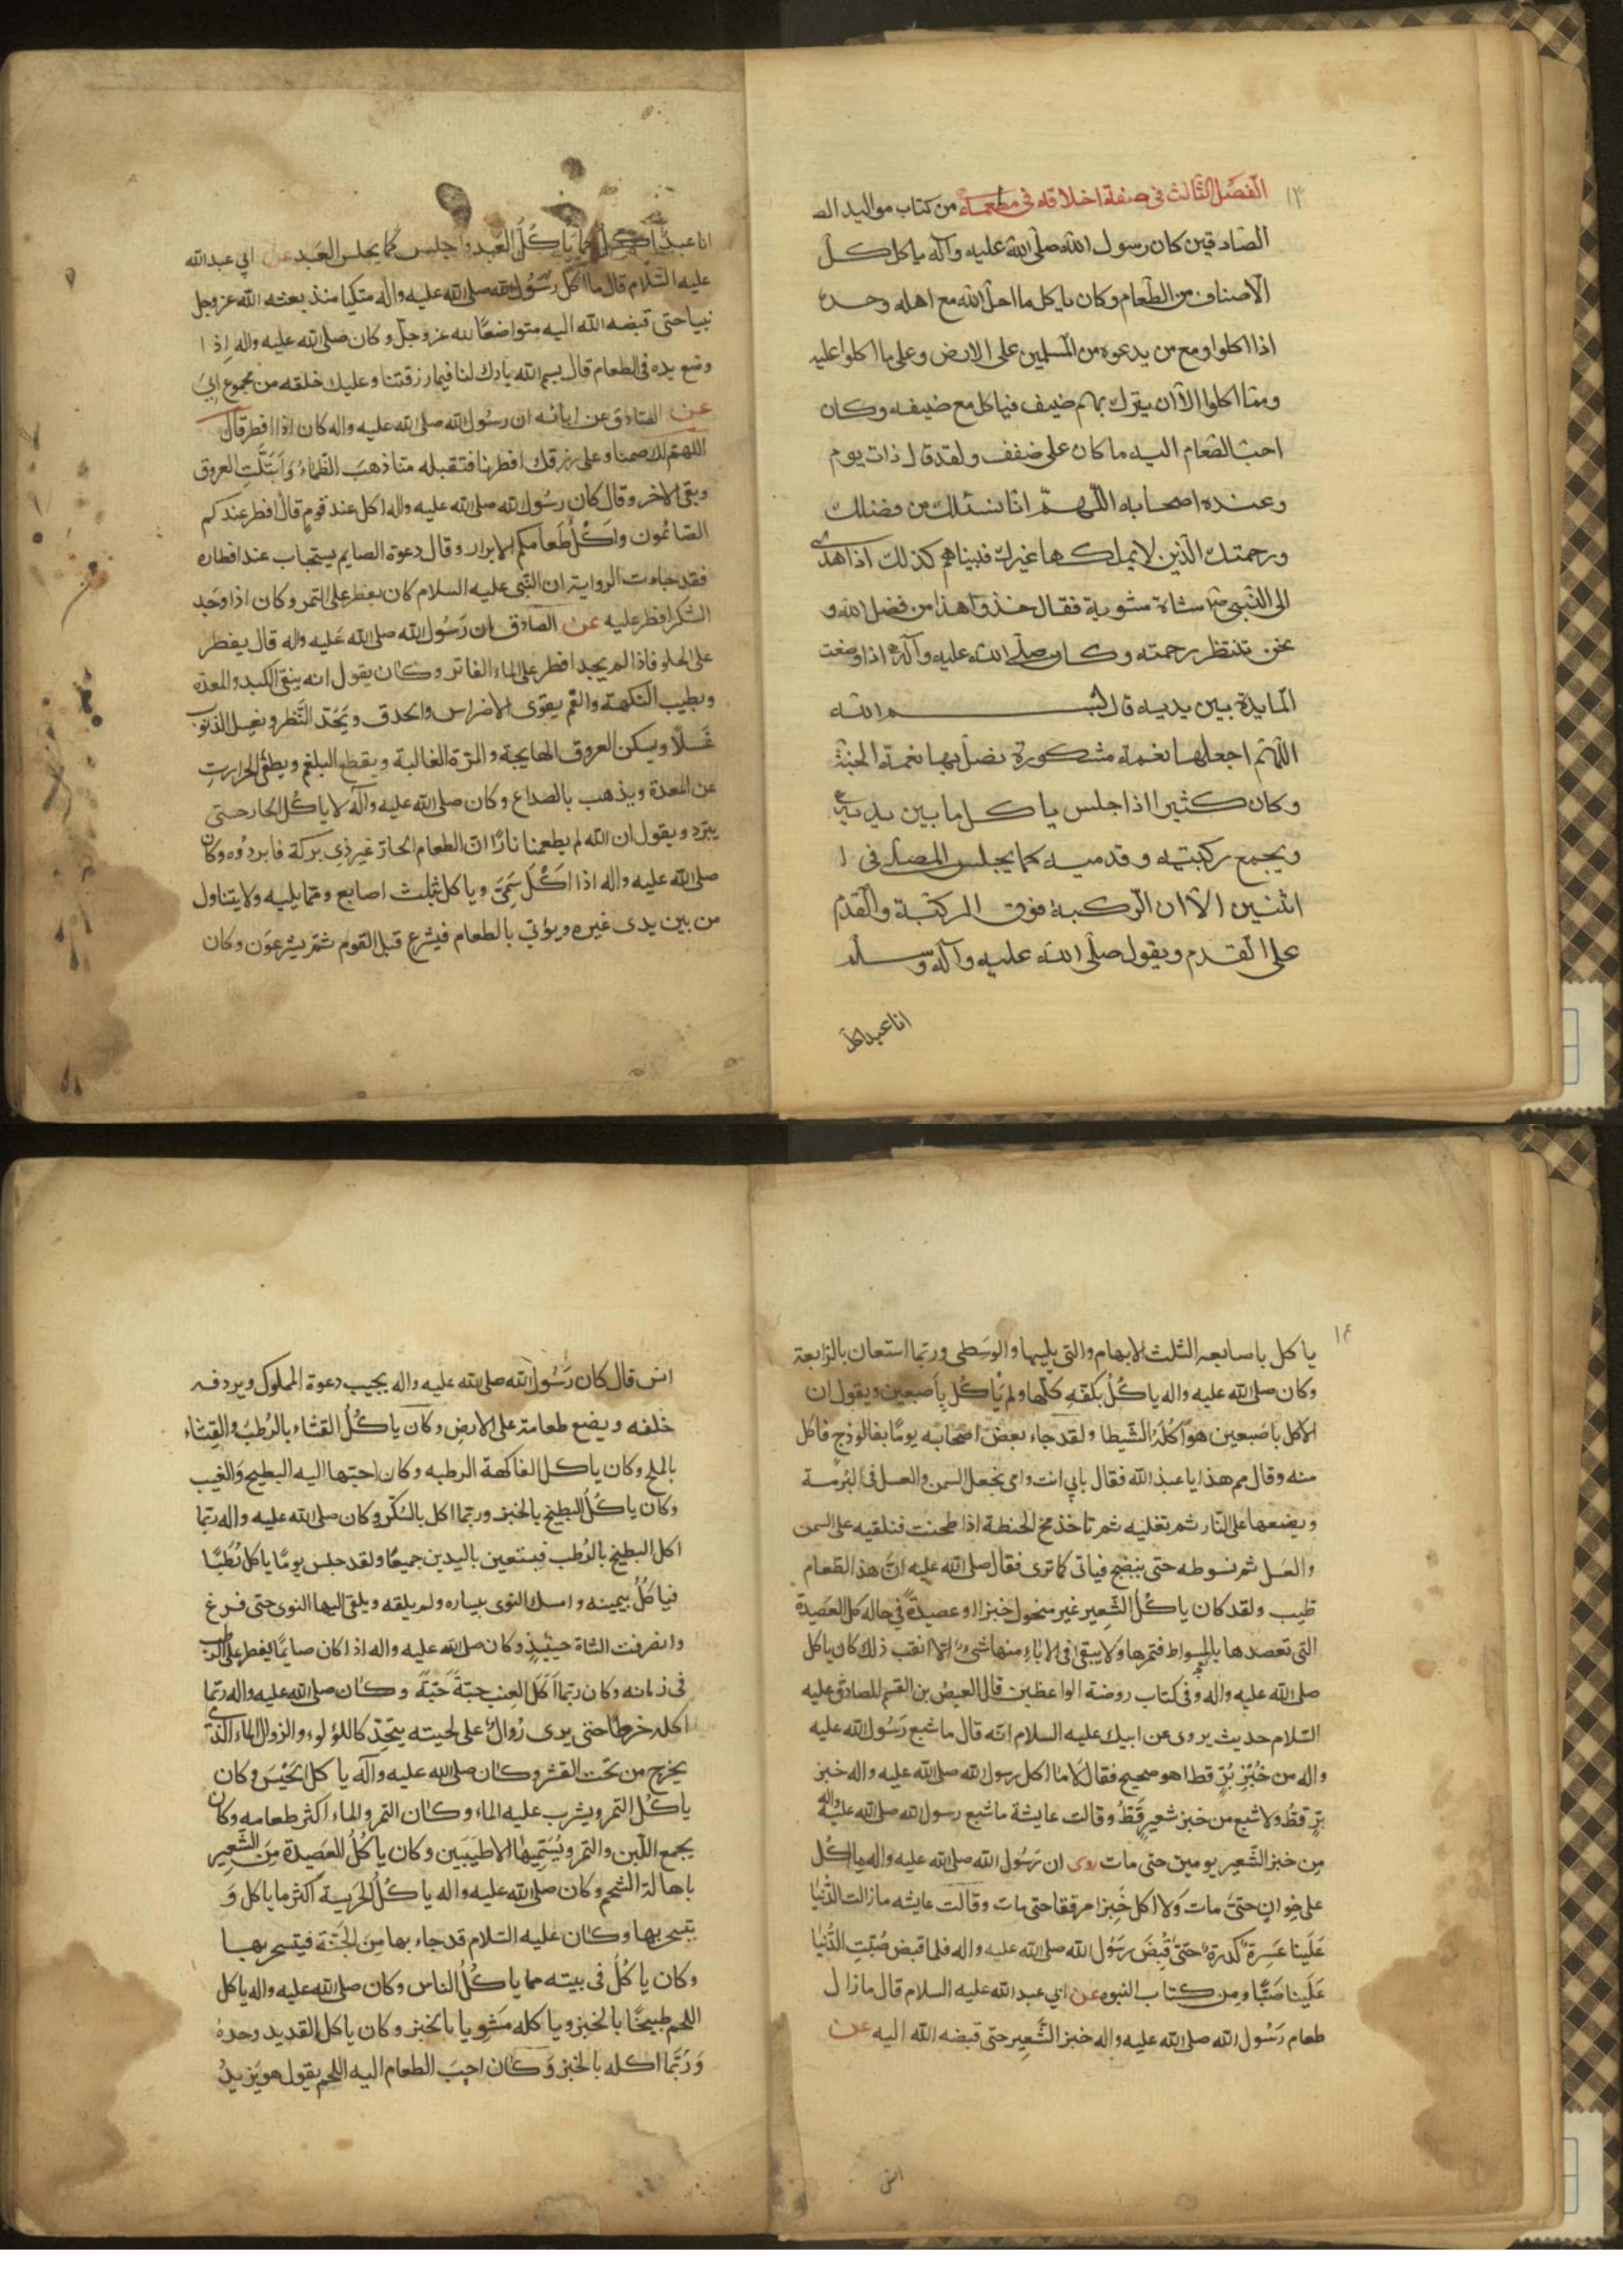 ١٣
الفصل الثالث فى صفة اخلاقه فى مطعمه من كتاب مواليد الص
الصادقين كان رسول الله صلى الله عليه وآله ياكل كل
الاصناف من الطعام وكان ياكل ما احل الله مع اهله وحده
اذا اكلوا ومع من يدعوه من المسلمين على الارض وعلى ما اكلوا عليه
ومما اكلوا الا ان ينزل بهم ضيف فياكل مع ضيفه وكان
احب الطعام اليه ما كان على ضفف ولقد قال ذات يوم
وعنده اصحابه اللهم انا نسئلك من فضلك
ورحمتك الذين لا يملكها غيرك فبيناهم كذلك اذا هدى
الى النبي شاة مشوية فقال خذوا هذا من فضل الله و
نحن ننتظر رحمته وكان صلى الله عليه وآله اذا وضعت
المايدة بين يديه قال بسم الله
اللهم اجعلها نعمة مشكورة نصل بها نعمة الجنة
وكان كثيرا اذا جلس ياكل ما بين يديه
ويجمع ركبتيه و قدميه كما يجلس المصلى فى ا
اثنين الا ان الركبة فوق الركبة والقدم
على القدم ويقول صلى الله عليه وآله وسلم
انا عبد اكل
انا عبد اكل كما ياكل العبد واجلس كما يجلس العبد عن ابي عبد الله
عليه السلام قال ما اكل رسول الله صلى الله عليه واله متكيا منذ بعثه الله عز وجل
نبيا حتى قبضه الله اليه متواضعا لله عز وجل وكان صلى الله عليه واله اذا
وضع يده فى الطعام قال بسم الله بارك لنا فيما رزقتنا وعليك خلفه من مجموع ابي
عن الصادق عن ابائه ان رسول الله صلى الله عليه واله كان اذا افطر قال
اللهم لك صمنا وعلى رزقك افطرنا فتقبله منا ذهب الظماء وابتلت العروق
وبقى الاخر وقال كان رسول الله صلى الله عليه واله اكل عند قوم قال افطر عندكم
الصائمون واكل طعامكم الابرار وقال دعوة الصايم يستجاب عند افطاره
فقد جاءت الرواية ان النبي عليه السلام كان يفطر على التمر وكان اذا وجد
السكر افطر عليه عن الصادق ان رسول الله صلى الله عليه واله قال يفطر
على الحلو فاذا لم يجد افطر على الماء الفاتر وكان يقول انه ينقى الكبد والمعدة
ويطيب النكهة والفم يقوى الاضراس والحدق ويحد النظر ويغسل الذنوب
غسلا ويسكن العروق الهايجة و المرة الغالبة ويقطع البلغم ويطفى الحرارت
عن المعدة ويذهب بالصداع وكان صلى الله عليه وآله لا ياكل الحار حتى
يبرد ويقول ان الله لم يطعمنا نارا ان الطعام الحار غير ذي بركة فابردوه وكان
صلى الله عليه واله اذا اكل سمى وياكل بثلث اصابع ومما يليه ولا يتناول
من بين يدى غيره ويؤتي بالطعام فيشرع قبل القوم ثم يشرعون وكان
١٤
ياكل باصابعه الثلث الابهام والتى يليها والوسطى وربما استعان بالرابعة
وكان صلى الله عليه واله ياكل بكفه كلها ولم ياكل باصبعين ويقول ان
الاكل باصبعين هو اكلة الشيطا ولقد جاء بعض اصحابه يوما بفالوذج فاكل
منه وقال مم هذا يا عبد الله فقال بابي انت وامى نجعل السمن والعسل فى البرمة
ويضعها على النار ثم نغليه ثم ناخذ مخ الحنطة اذا طحنت فنلقيه على السمن
والعسل ثم نسوطه حتى ينضج فياتى كما ترى فقال صلى الله عليه ان هذا الطعام
طيب ولقد كان ياكل الشعير غير منخول خبزا او عصيدة في حاله كل العصيدة
التى تعصدها بالمسواط فتمرها ولا يبقى فى الاناء منها شىء الا انقب ذلك كان ياكل
صلى الله عليه واله وفى كتاب روضة الواعظين قال العيص بن القسم للصادق عليه
السلام حديث يروى عن ابيك عليه السلام انه قال ما شبع رسول الله عليه
واله من خبز بر قط اهو صحيح فقال لا ما اكل رسول الله صلى الله عليه واله خبز
بر قط ولا شبع من خبز شعير قط وقالت عايشة ما شبع رسول الله صلى الله عليه واله
من خبز الشعير يومين حتى مات روى ان رسول الله صلى الله عليه واله لم ياكل
على خوان حتى مات ولا اكل خبزا مرققا حتى مات وقالت عايشه ما زالت الدنيا
علينا عسرة كدرة حتى قبض رسول الله صلى الله عليه واله فلما قبض صبت الدنيا
علينا صبا ومن كتاب النبوه عن ابي عبد الله عليه السلام قال ما زال
طعام رسول الله صلى الله عليه واله خبز الشعير حتى قبضه الله اليه عن
انس
انس قال كان رسول الله صلى الله عليه واله يجيب دعوة المملوك ويردفه
خلفه ويضع طعامه على الارض وكان ياكل القثاء بالرطب والقثاء
بالملح وكان ياكل الفاكهة الرطبه وكان احبها اليه البطيخ والعنب
وكان ياكل البطيخ بالخبز وربما اكل بالسكر وكان صلى الله عليه واله ربما
اكل البطيخ بالرطب فيستعين باليدين جميعا ولقد جلس يوما ياكل رطبا
فياكل بيمينه وامسك النوى بيساره ولم يلقه ويلقى اليها النوى حتى فرغ
وانصرفت الشاة حينئذ وكان صلى الله عليه واله اذا كان صايما يفطر على الرطب
فى زمانه وكان ربما اكل العنب حبة حبة وكان صلى الله عليه واله ربما
اكله خرطا حتى يرى زوال على لحيته يتحدر كاللؤلوء والزوال الماء الذى
يخرج من تحت القشر وكان صلى الله عليه وآله ياكل الحيس وكان
ياكل التمر ويشرب عليه الماء وكان التمر والماء اكثر طعامه وكان
يجمع اللبن والتمر ويسميها الاطيبين وكان ياكل العصيدة من الشعير
باهالة الشحم وكان صلى الله عليه واله ياكل الهريسة اكثر ما ياكل و
يتسحر بها وكان عليه السلام قد جاء بها من الجنة فيتسحر بها
وكان ياكل فى بيته مما ياكل الناس وكان صلى الله عليه واله ياكل
اللحم طبيخا بالخبز وياكله مشويا بالخبز وكان ياكل القديد وحده
وربما اكله بالخبز وكان احب الطعام اليه اللحم يقول هو يزيد